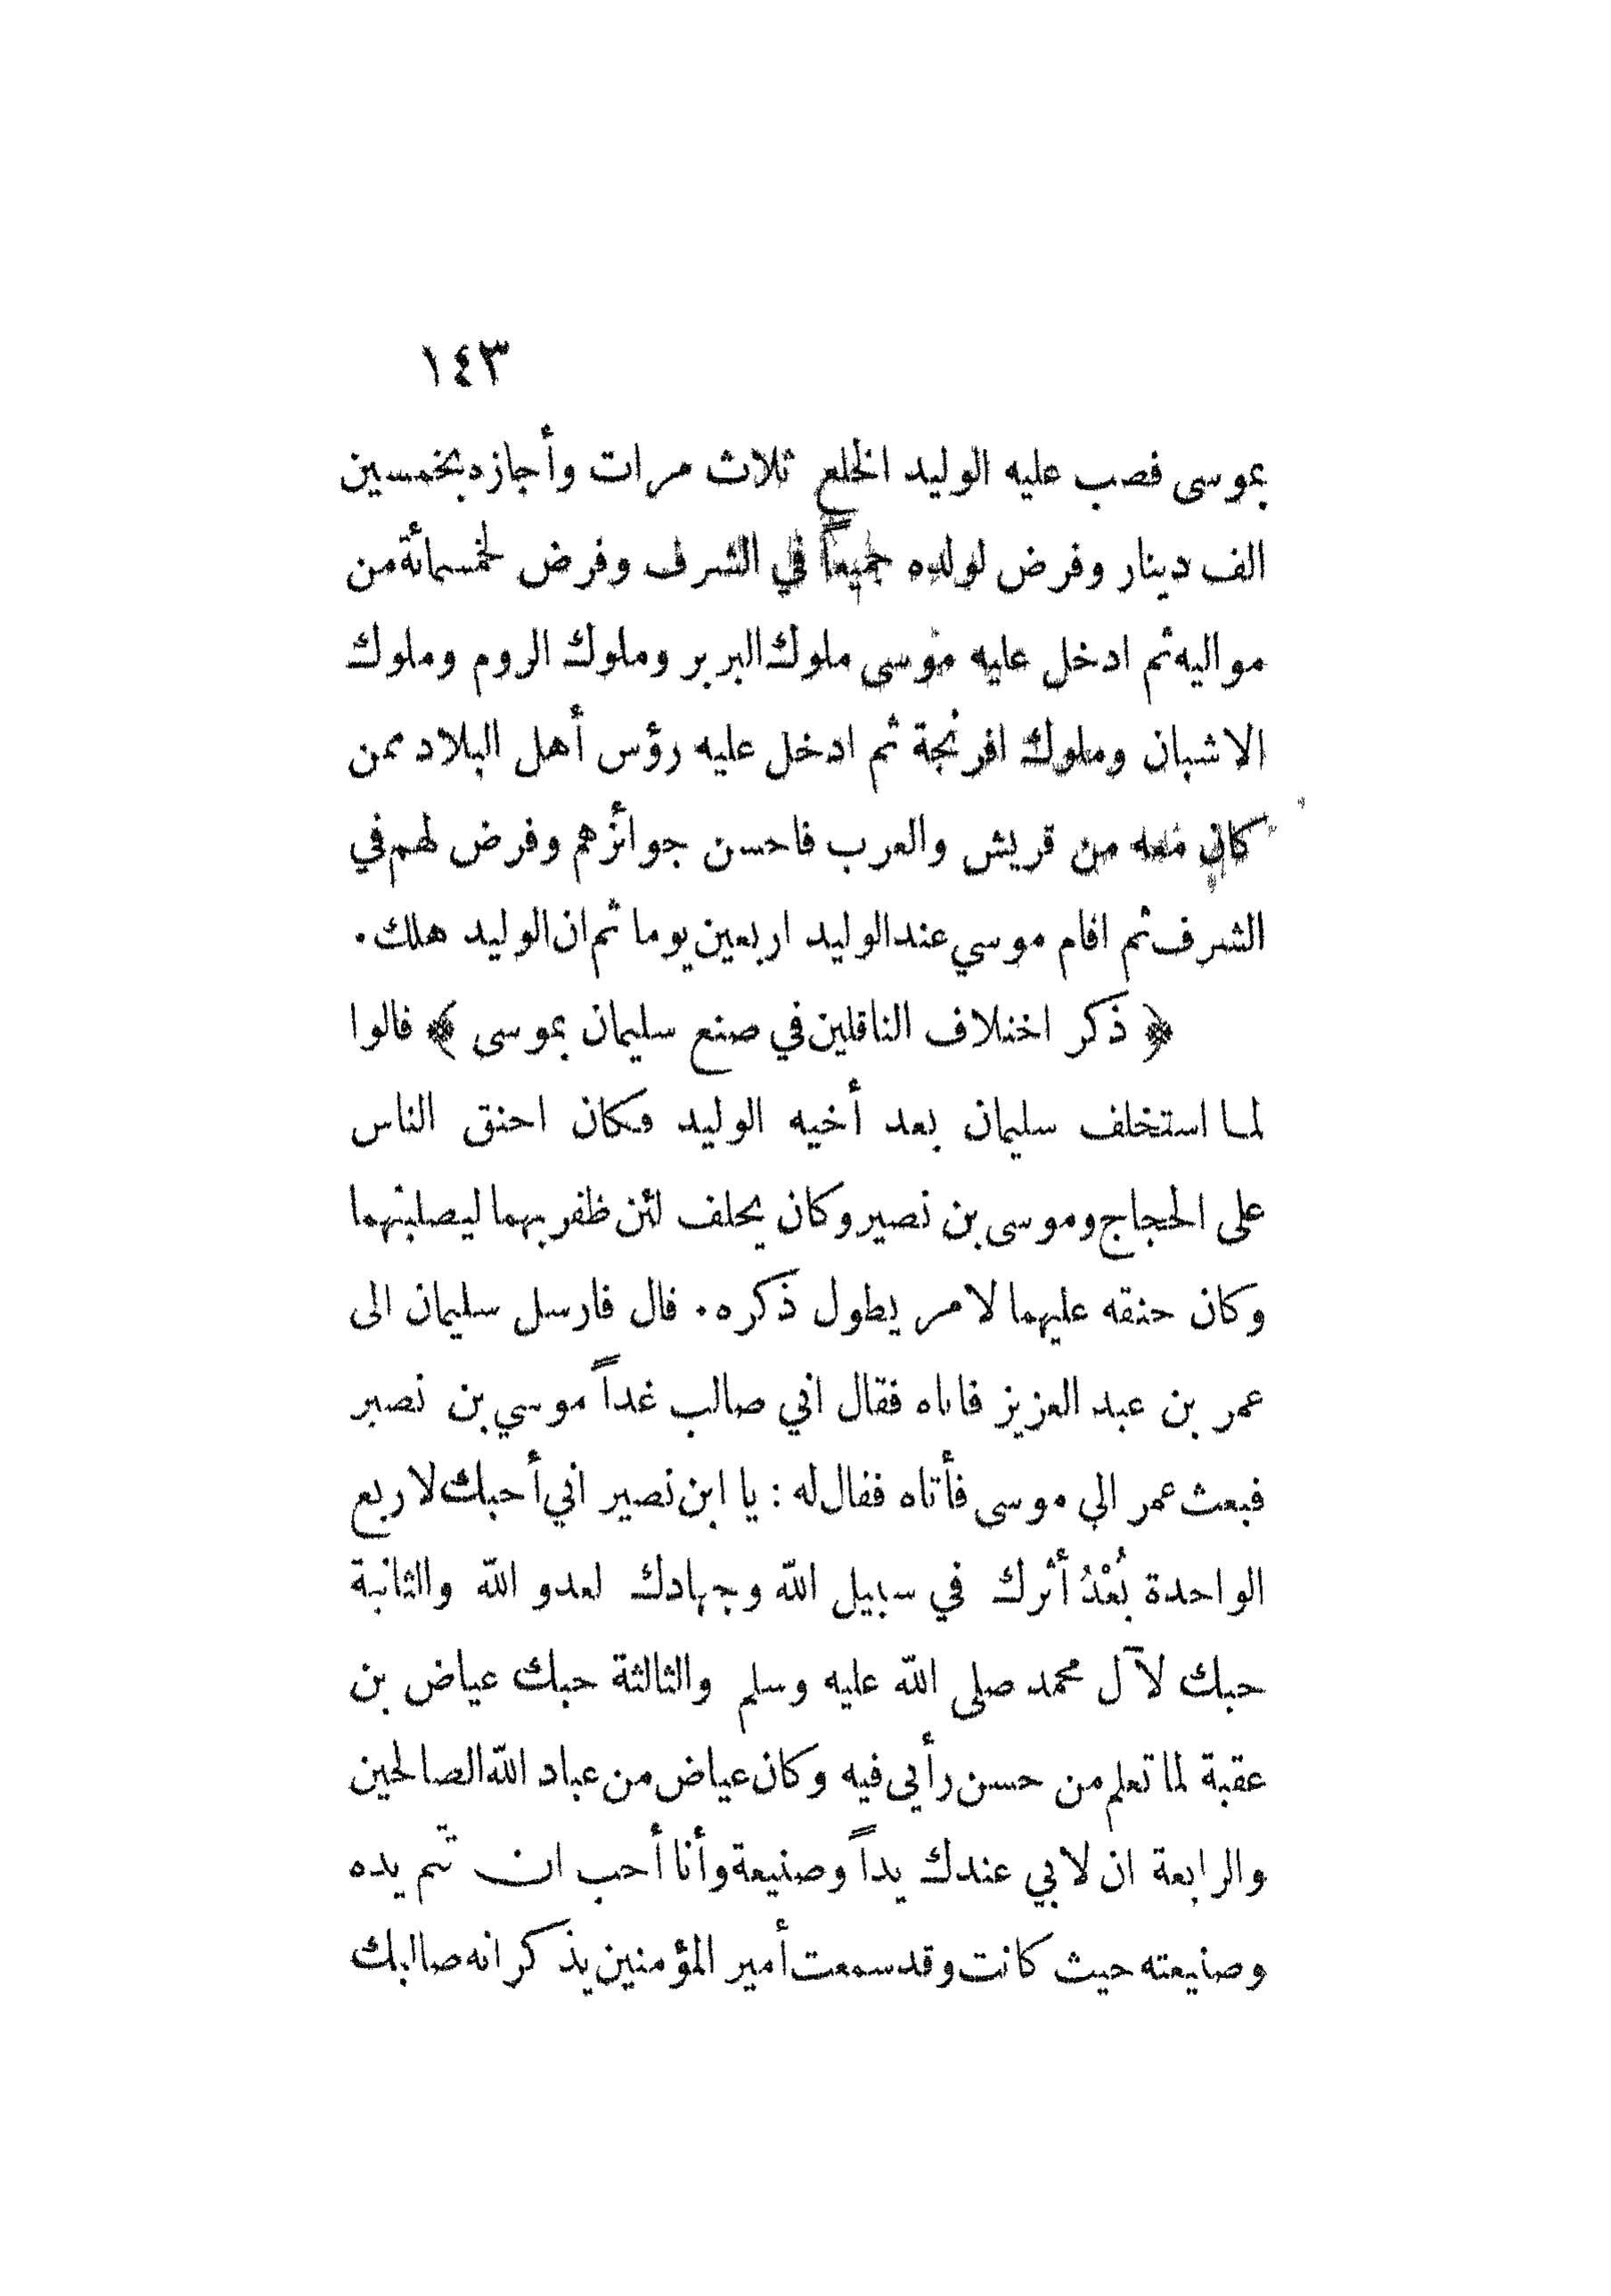 ١٤٣
بموسى فصب عليه الوليد الخلع ثلاث مرات وأجازه بخمسين
الف دينار وفرض لولده جميعاً في الشرف وفرض لخمسمائة من
مواليه ثم ادخل عليه موسى ملوك البربر وملوك الروم وملوك
الاشبان وملوك افرنجة ثم ادخل عليه رؤس أهل البلاد ممن
كان معه من قريش والعرب فاحسن جوائزهم وفرض لهم في
الشرف ثم اقام موسي عند الوليد اربعين يوما ثم ان الوليد هلك .
﴿ ذكر اختلاف الناقلين في صنع سليمان بموسى ﴾ قالوا
لما استخلف سليمان بعد أخيه الوليد فكان احنق الناس
على الحجاج وموسى بن نصير وكان يحلف لئن ظفر بهما ليصلبنهما
وكان حنقه عليهما لامر يطول ذكره . قال فارسل سليمان الى
عمر بن عبد العزيز فاتاه فقال اني صالب غداً موسي بن نصير
فبعث عمر الي موسى فأتاه فقال له : يا ابن نصير اني أحبك لاربع
الواحدة بُعْدُ أثرك في سبيل الله وجهادك لعدو الله والثانية
حبك لآل محمد صلى الله عليه وسلم والثالثة حبك عياض بن
عقبة لما تعلم من حسن رأيي فيه وكان عياض من عباد الله الصالحين
والرابعة ان لابي عندك يداً وصنيعة وأنا أحب ان تتم يده
وصنيعته حيث كانت وقد سمعت أمير المؤمنين يذكر انه صالبك